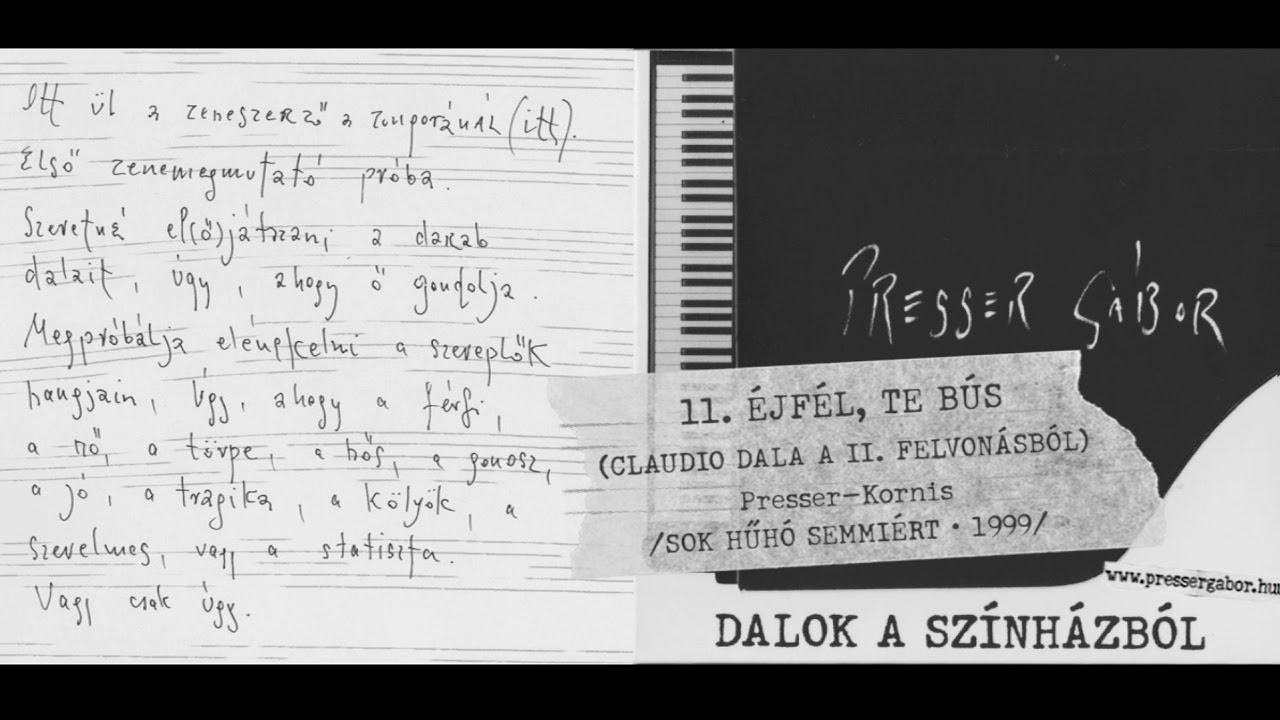 Itt ül a zeneszerző a zongoránál (itt).
Első zenemegmutató próba.
Szeretné el(ő)játszani a darab
dalait, úgy, ahogy ő gondolja.
Megpróbálja elénekelni a szereplők
hangjain, úgy, ahogy a férfi,
a nő, a törpe, a hős, a gonosz,
a jó, a tragika, a kölyök, a
szerelmes, vagy a statiszta.
Vagy csak úgy.
PRESSER GÁBOR
11. ÉJFÉL, TE BÚS
(CLAUDIO DALA A II. FELVONÁSBÓL)
Presser-Kornis
/SOK HŰHÓ SEMMIÉRT • 1999/
www.pressergabor.hu
DALOK A SZÍNHÁZBÓL